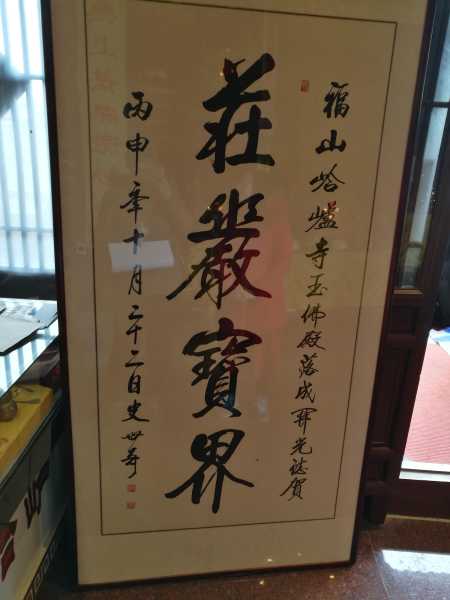 福山峆㠠寺玉佛殿落成開光誌賀
莊嚴寶界
丙申年十月二十二日史世